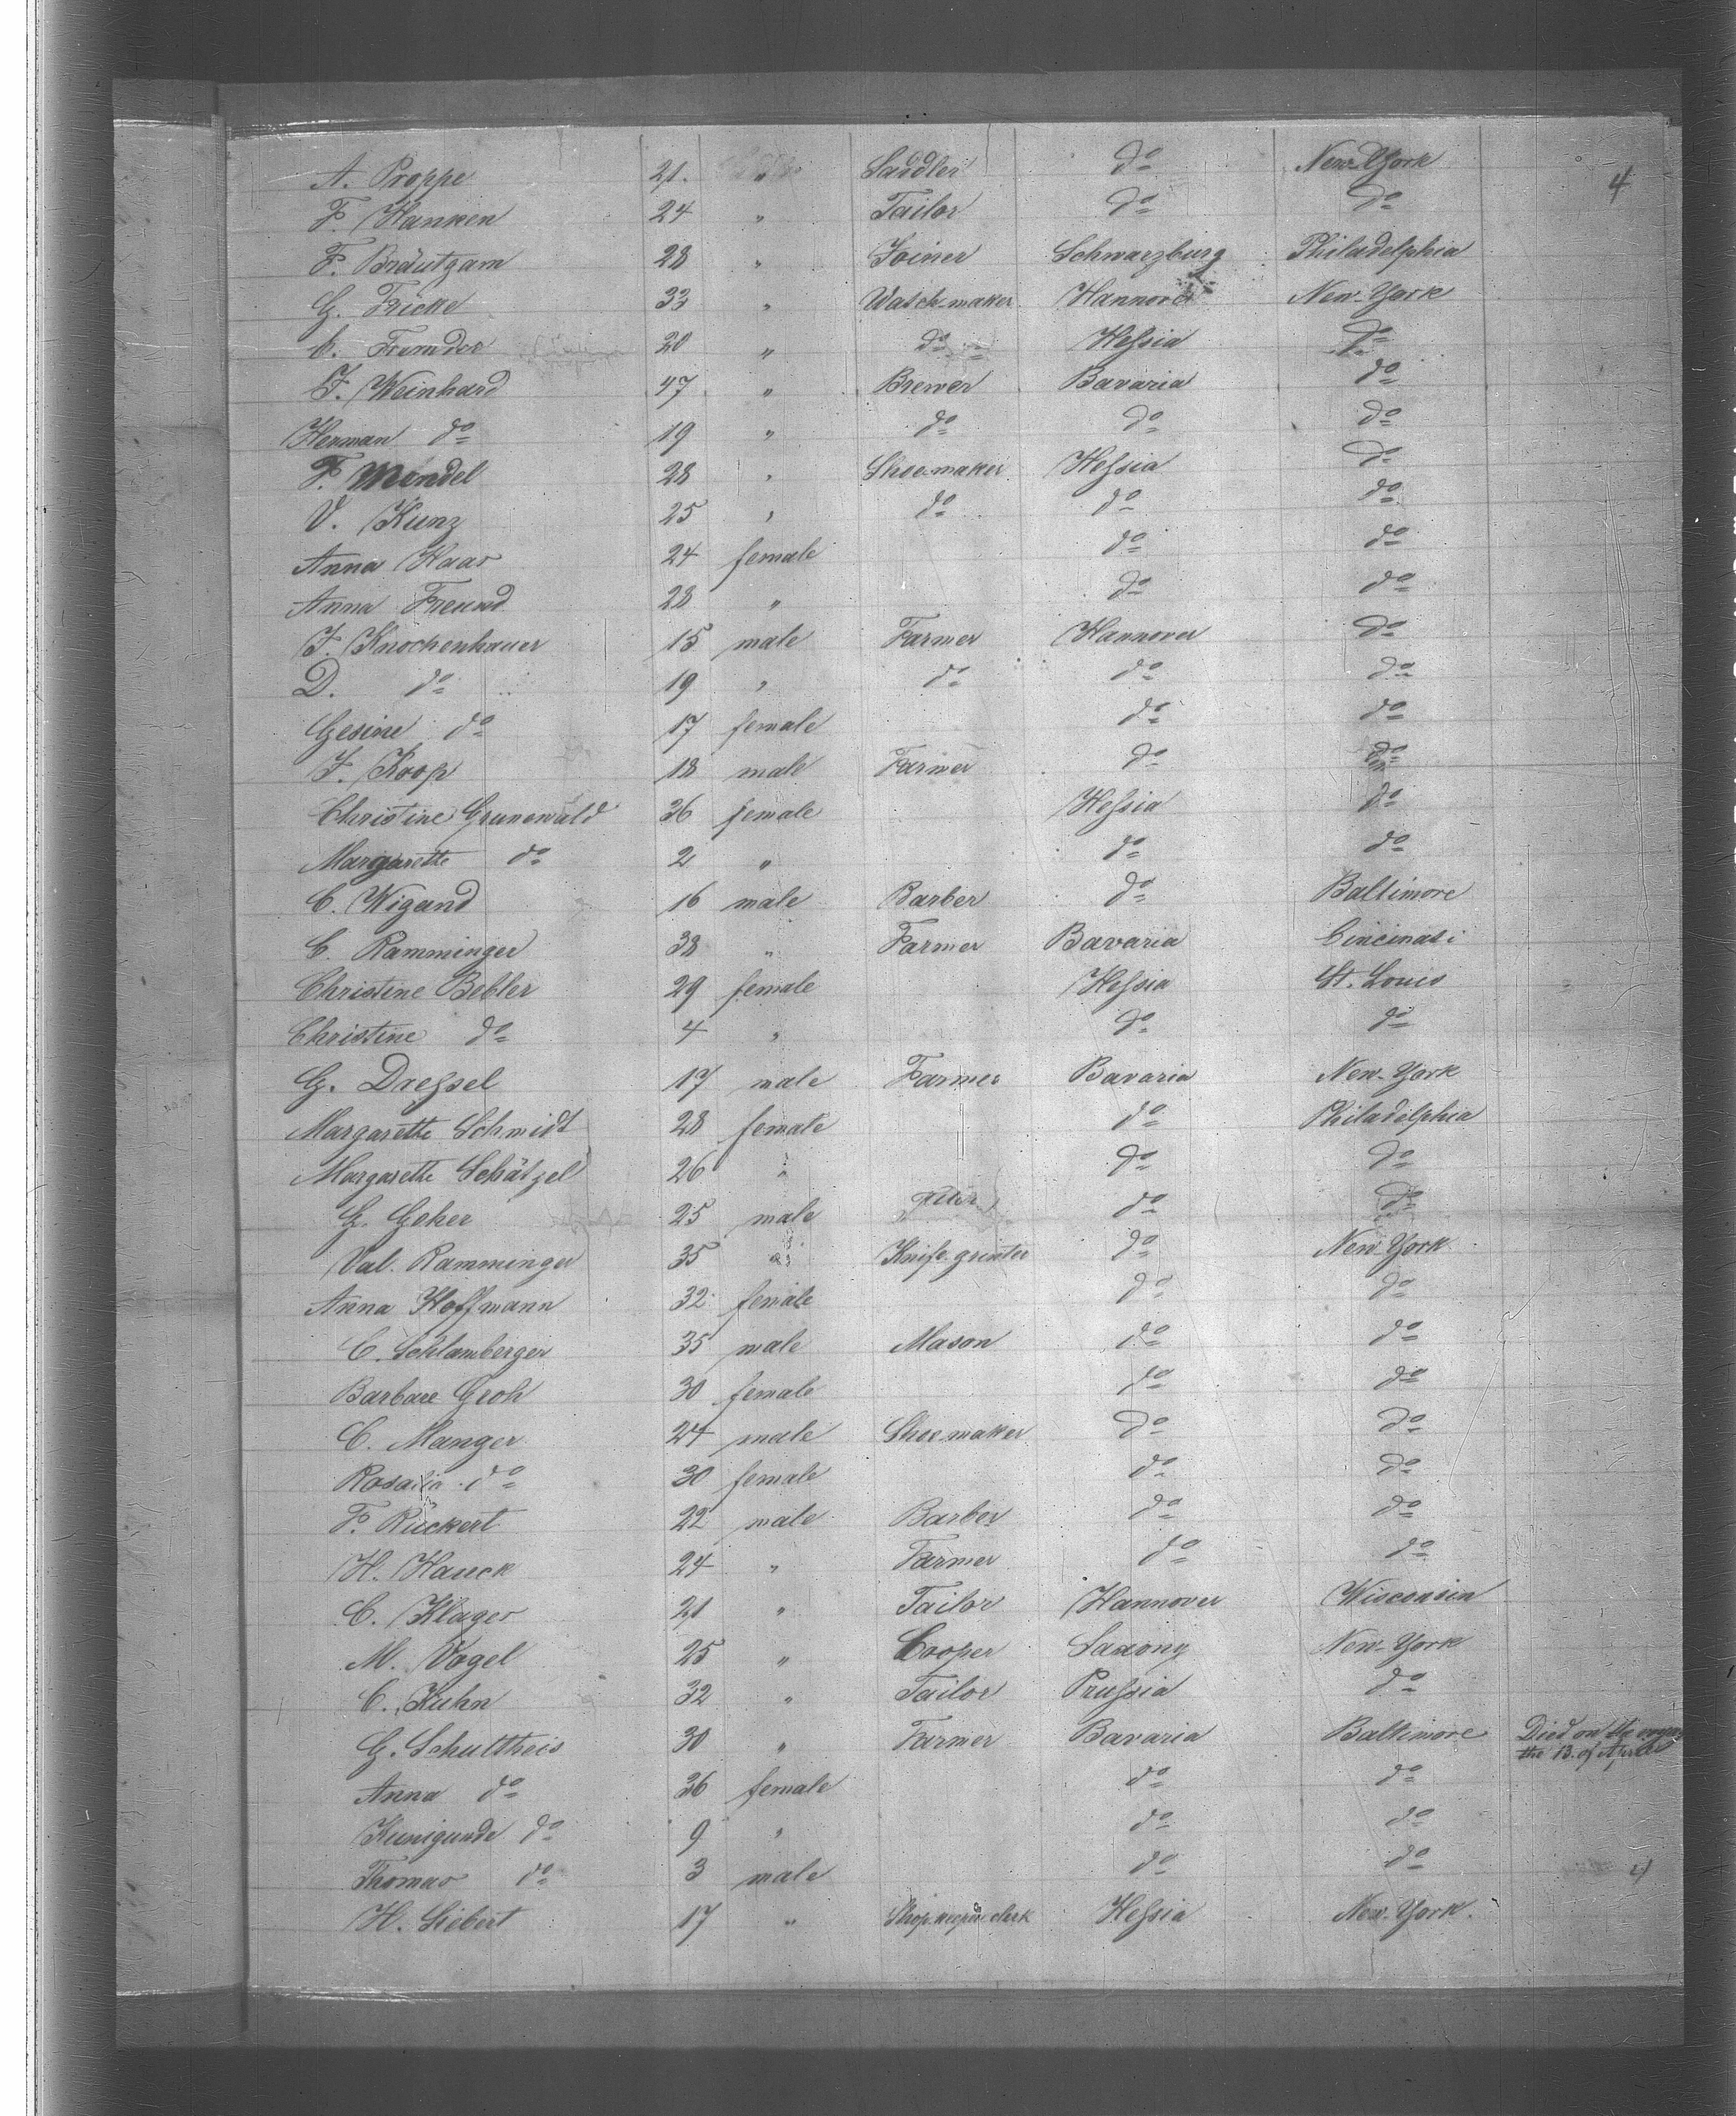 A. Proppe 21. " Sardler do New-York 4
F. Hanken 24 " Tailor do do
F. Bräutgam 28 " Joiner Schwarzburg Philadelphia
G. Fricke 33 " Watch-maker Hannover New-York
20 " do Heſsia do
F. Weinhard 47 " Brewer Bavaria do
Herman do 19 " do do do
F. Mendel 28 " Shoe-maker Heſsia do
V. Kunz 25 " do do do
Anna Haas 24 female do do
Anna Freund 28 " do do
J. Knochenhauer 15 male Farmer Hannover do
D. do 19 " do do do
Gesine do 17 female do do
J. Koop 18 male Farmer do do
Christine Grunewald 36 female Heſsia do
Margarette do 2 " do do
C. Wigand 16 male Barber do Baltimore
C. Ramminger 38 " Farmer Bavaria Cincinati
Christine Bebler 29 female Heſsia St. Louis
Christine do 4 " do do
G. Dreſsel 17 male Farmer Bavaria New-York
Margarette Schmidt 28 female do Philadelphia
Margarette Schätzel 26 " do do
G. Goher 25 male do do
Val. Ramminger 35 " Knife-grinter do New-York
Anna Hoffmann 32 female do do
C. Schlamberger 35 male Mason do do
Barbare Groh 30 female do do
C. Manger 24 male Shoe-maker do do
Rosalia do 30 female do do
F. Rückert 22 male Barber do do
H. Hauck 24 " Farmer do do
C. Klager 21 " Tailor Hannover Wisconsin
M. Vogel 25 " Cooper Saxony New-York
C. Kuhn 32 " Tailor Pruſsia do
G. Schultheis 30 " Farmer Bavaria Baltimore Died on the
the 13. of April
Anna do 26 female do do
Kunigunde do 9 " do do
Thomas do 3 male do do 4
H. Siebert 17 " clerk Heſsia New-York.